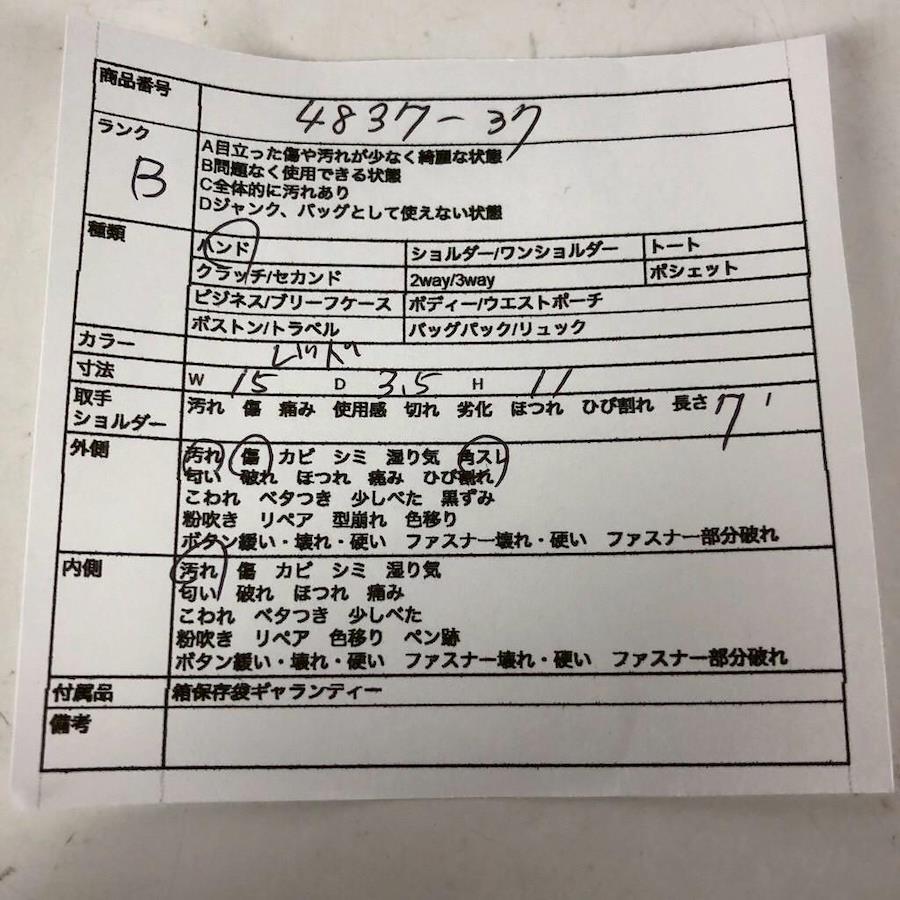 商品番号 4837-37
ランク B
A目立った傷や汚れが少なく綺麗な状態
B問題なく使用できる状態
C全体的に汚れあり
Dジャンク、バッグとして使えない状態
種類
ハンド ショルダー/ワンショルダー トート
クラッチ/セカンド 2way/3way ポシェット
ビジネス/ブリーフケース ボディー/ウエストポーチ
ボストン/トラベル バッグパック/リュック
カラー レッド
寸法 W 15 D 3.5 H 11
取手
ショルダー
汚れ 傷 痛み 使用感 切れ 劣化 ほつれ ひび割れ 長さ 7
外側
汚れ 傷 カビ シミ 湿り気 角スレ
匂い 破れ ほつれ 痛み ひび割れ
こわれ ベタつき 少しべた 黒ずみ
粉吹き リペア 型崩れ 色移り
ボタン緩い・壊れ・硬い ファスナー壊れ・硬い ファスナー部分破れ
内側
汚れ 傷 カビ シミ 湿り気
匂い 破れ ほつれ 痛み
こわれ ベタつき 少しべた
粉吹き リペア 色移り ペン跡
ボタン緩い・壊れ・硬い ファスナー壊れ・硬い ファスナー部分破れ
付属品 箱保存袋ギャランティー
備考